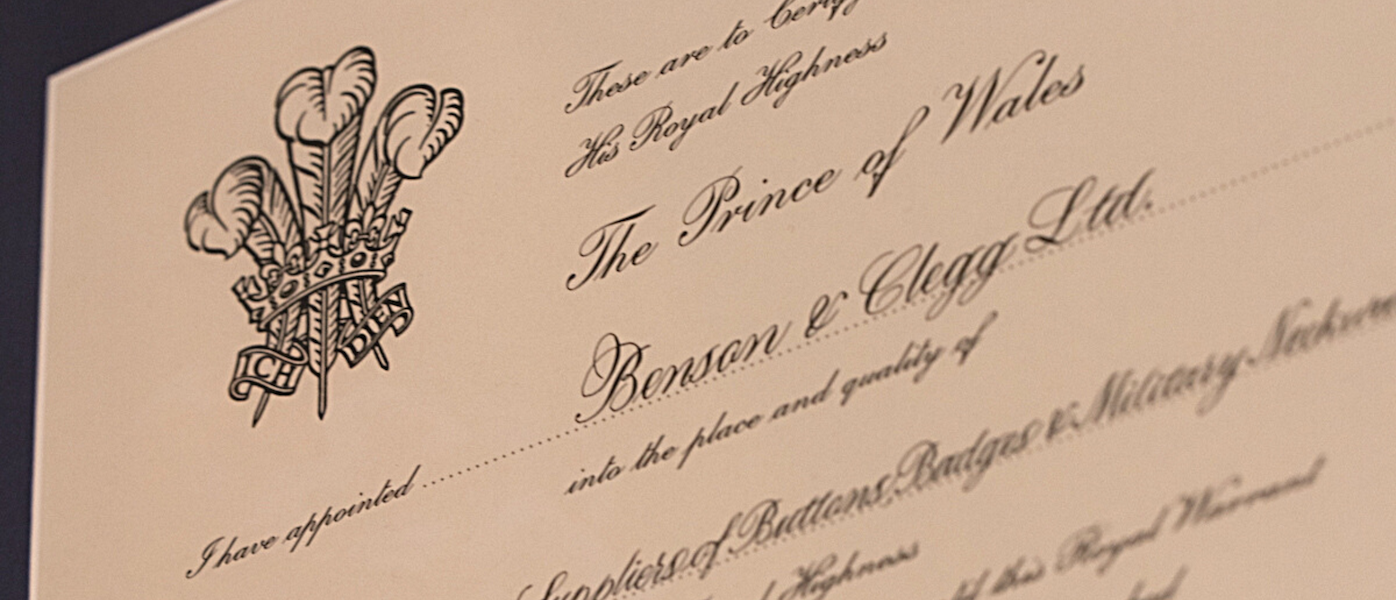 These are to Certify
His Royal Highness
The Prince of Wales
I have appointed Benson & Clegg Ltd.
into the place and quality of
Suppliers of Buttons, Badges & Military Neckwear
Highness
this Royal Warrant
ICH DIEN